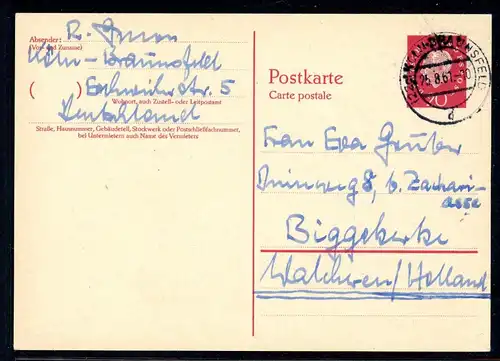 Absender:
(Vor- und Zuname)
R.
Köln-Braunsfeld
( ) Eschweilerstr. 5
Wohnort, auch Zustell- oder Leitpostamt
Deutschland
Straße, Hausnummer, Gebäudeteil, Stockwerk oder Postschließfachnummer,
bei Untermietern auch Name des Vermieters
Postkarte
Carte postale
BRAUNSFELD
25.8.61
d
20
Frau Eva Gruber
Duinweg 8, b. Zachari-
asse
Biggekerke
Walcheren/Holland